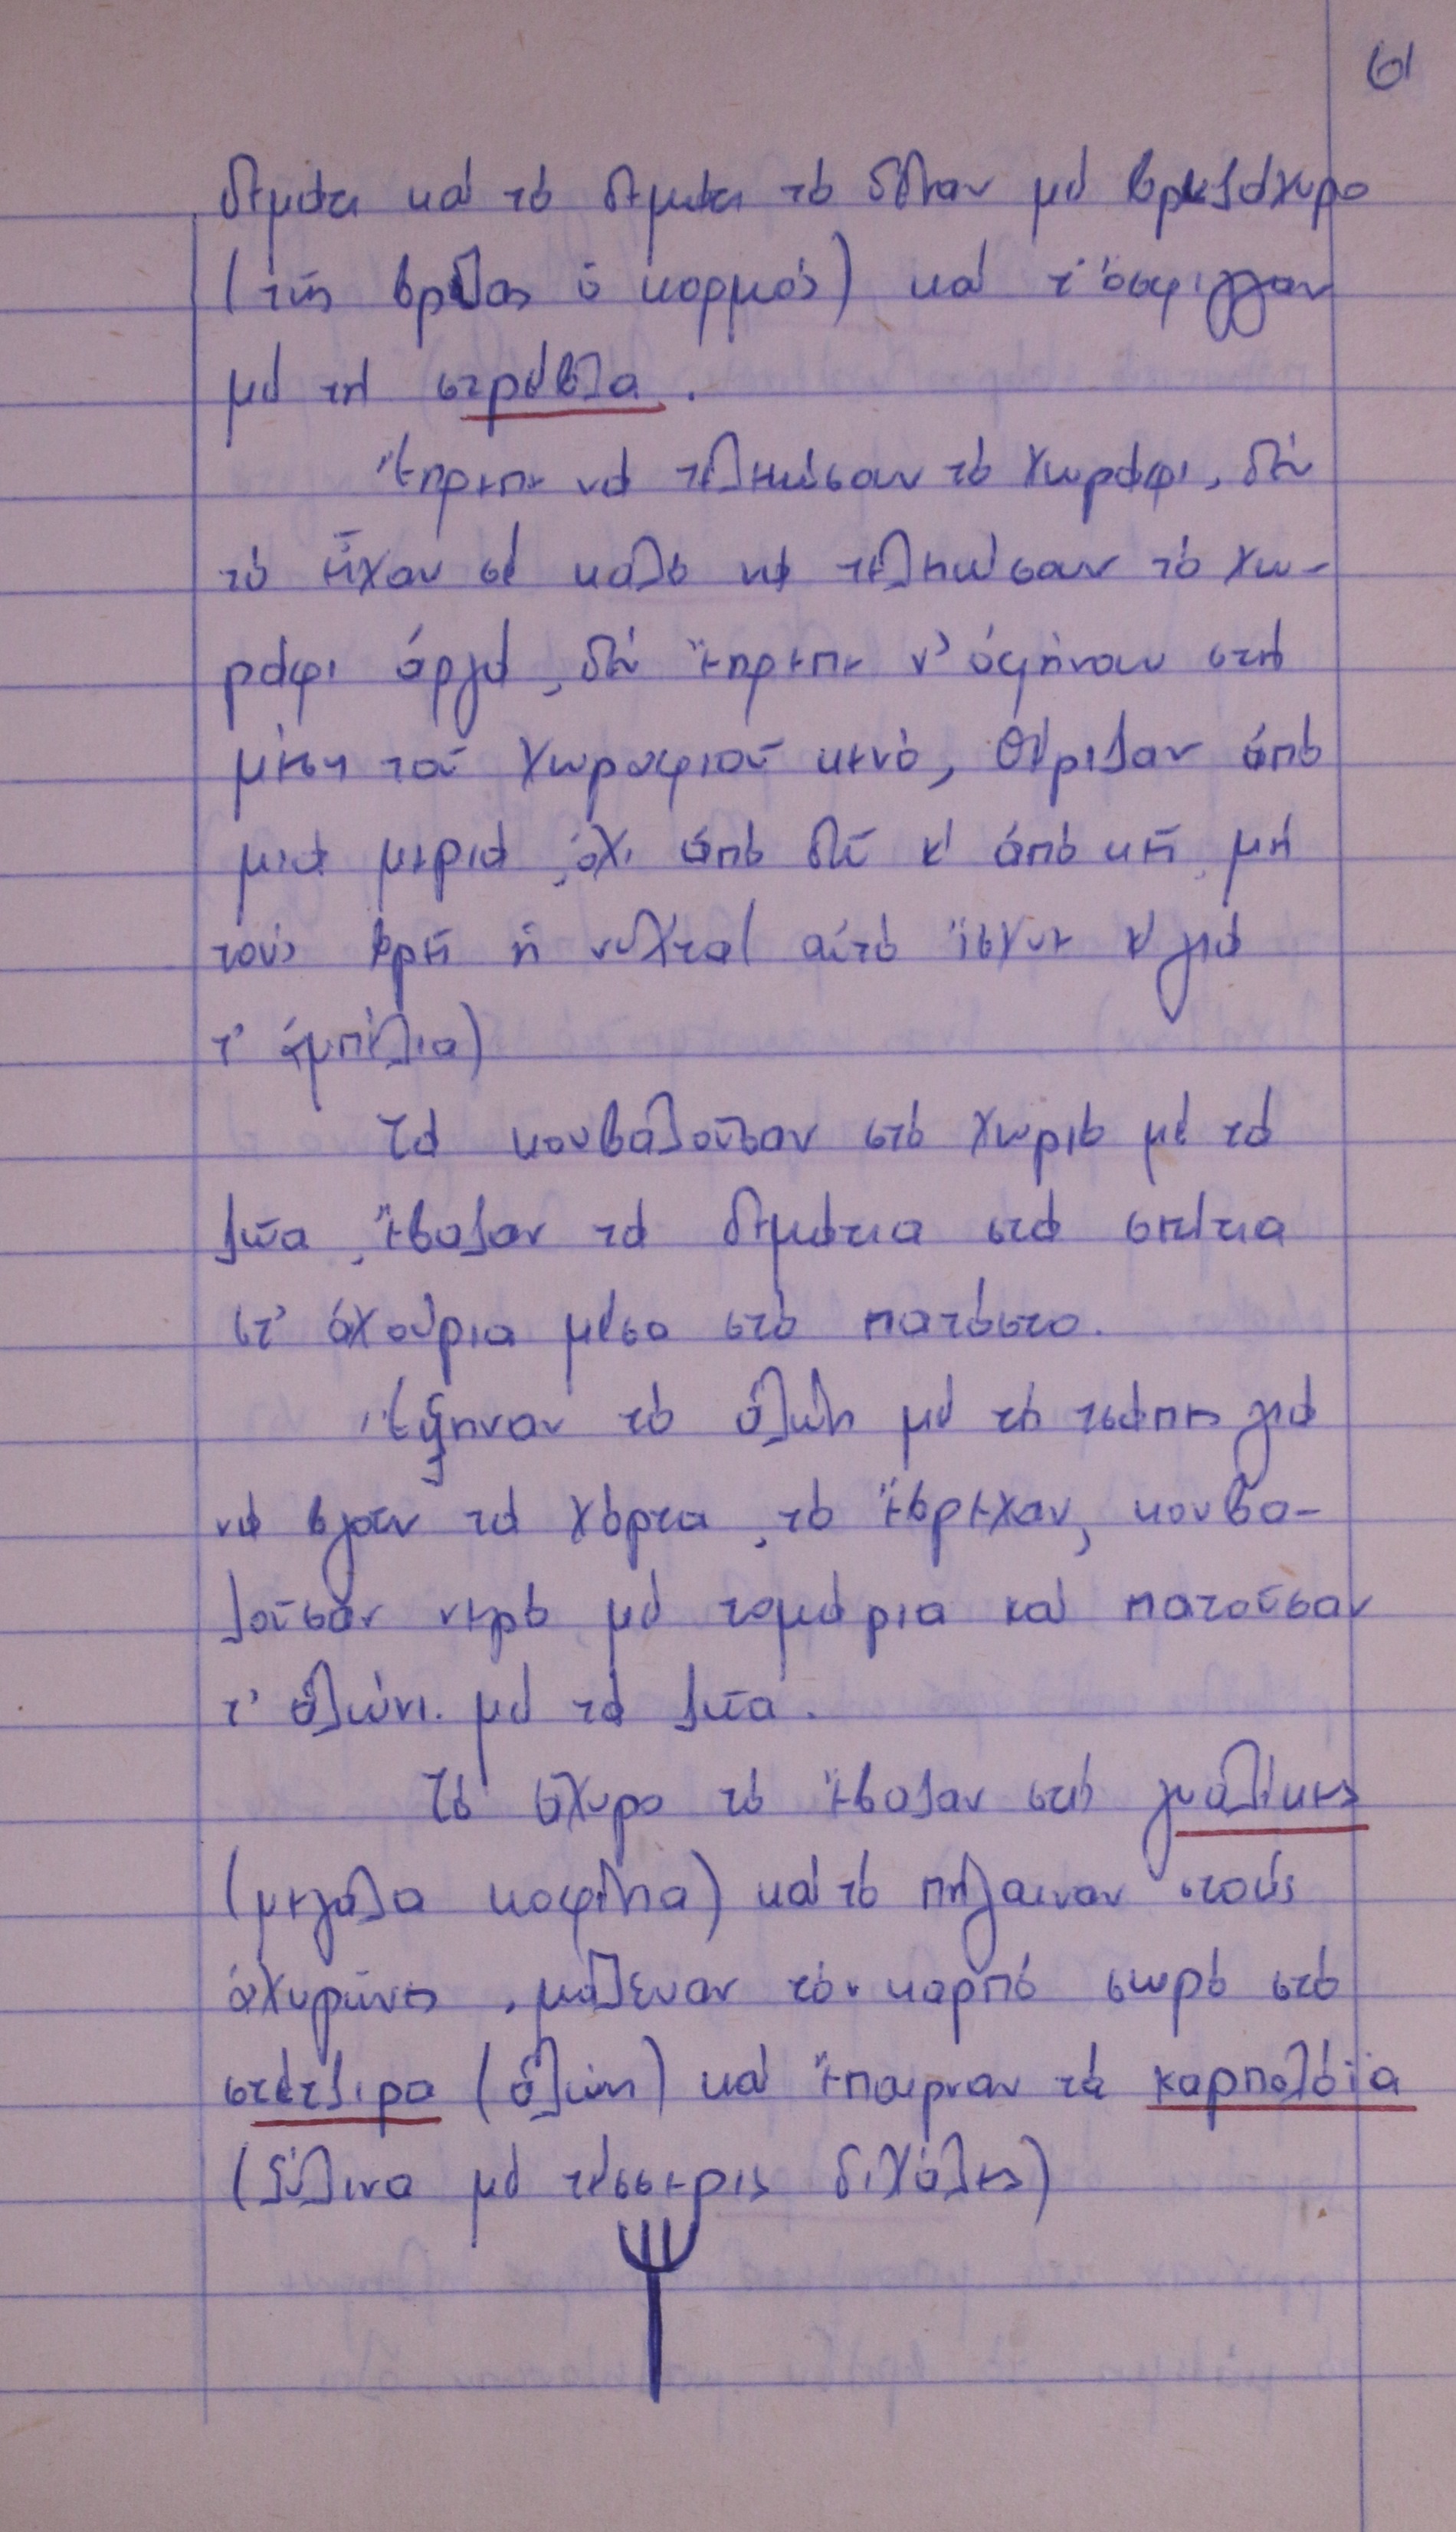 61
δεμάτι καί τό δεμάτι τό δέναν μέ βριζάχυρο
(τῆς βρίζας ὁ κορμός) καί τ' ἔσφιγγαν
μέ τή στρέβλα.
Ἔπρεπε νά τελειώσουν τό χωράφι, δέν
τό εἶχαν σέ καλό νά τελειώσουν τό χω-
ράφι ἀργά, δέν ἔπρεπε ν' ἀφήνουν στή
μέση τοῦ χωραφιοῦ κενό, θέριζαν ἀπό
μιά μεριά, ὄχι ἀπό δῶ κ' ἀπό κεῖ, μή
τούς βρεῖ ἡ νύχτα (αὐτό ἴσχυε κ' γιά
τ' ἀμπέλια)
Τά κουβαλοῦσαν στό χωριό μέ τά
ζῶα, ἔβαζαν τά δεμάτια στά σπίτια
στ' ἀχούρια μέσα στό πατόστο.
Ἔξηναν τό ἁλώνι μέ τή τσάπες γιά
νά βγοῦν τά χόρτα, τό ἔβρεχαν, κουβα-
λοῦσαν νερό μέ τομάρια καί πατοῦσαν
τ' ἁλώνι μέ τά ζῶα.
Τό ἄχυρο τό ἔβαζαν στίς γυαλίκες
(μεγάλα κοφίνια) καί τό πήγαιναν στούς
ἀχυρῶνες, μάζευαν τόν καρπό σωρό στό
στέτζιρο (ἁλώνι) καί ἔπαιρναν τά καρπολόϊα
(ξύλινα μέ τέσσερις διχάλες)